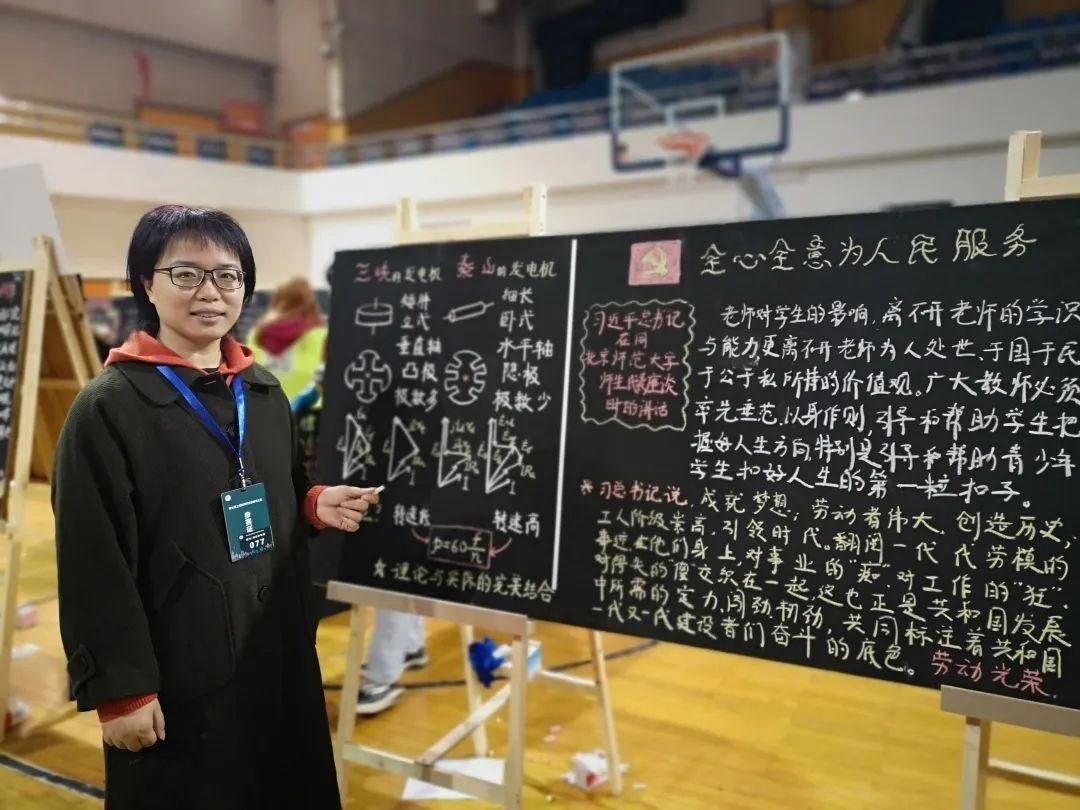 三峡的发电机 燕山的发电机
矮胖 细长
立式 卧式
垂直轴 水平轴
凸极 隐极
极数多 极数少
转速低 转速高
p=60f/n
理论与实际的完美结合
全心全意为人民服务
习近平总书记
在同
北京师范大学
师生代表座谈
时的讲话
老师对学生的影响,离不开老师的学识
与能力,更离不开老师为人处世、于国于民、
于公于私所持的价值观。广大教师必须
率先垂范、以身作则,引导和帮助学生把
握好人生方向,特别是引导和帮助青少年
学生扣好人生的第一粒扣子。
习总书记说,成就梦想;劳动者伟大,创造历史,
工人阶级崇高,引领时代。翻阅一代代劳模的
事迹,在他们身上,对事业的"痴",对工作的"狂",
对得失的"傻"交织在一起,这也正是共和国发展
中所需的定力、闯劲韧劲,共同标注着共和国
一代又一代建设者们奋斗的底色。劳动光荣
参赛证
077